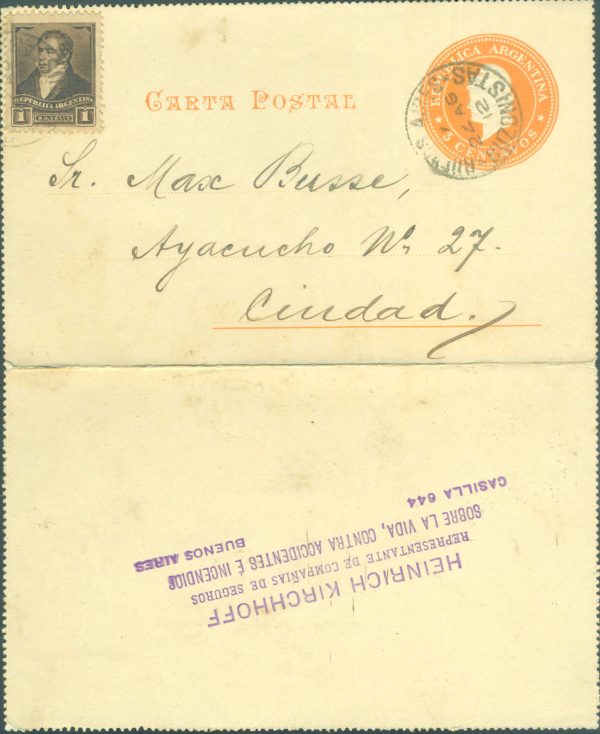 REPUBLICA ARGENTINA
1 CENTAVO 1
CARTA POSTAL
REPUBLICA ARGENTINA
3 CENTAVOS
BUENOS AIRES
24 AG
12
Sr. Max Busse,
Ayacucho Nr 27.
Ciudad.
HEINRICH KIRCHHOFF
REPRESENTANTE DE COMPAÑIAS DE SEGUROS
SOBRE LA VIDA, CONTRA ACCIDENTES É INCENDIOS
CASILLA 644 BUENOS AIRES